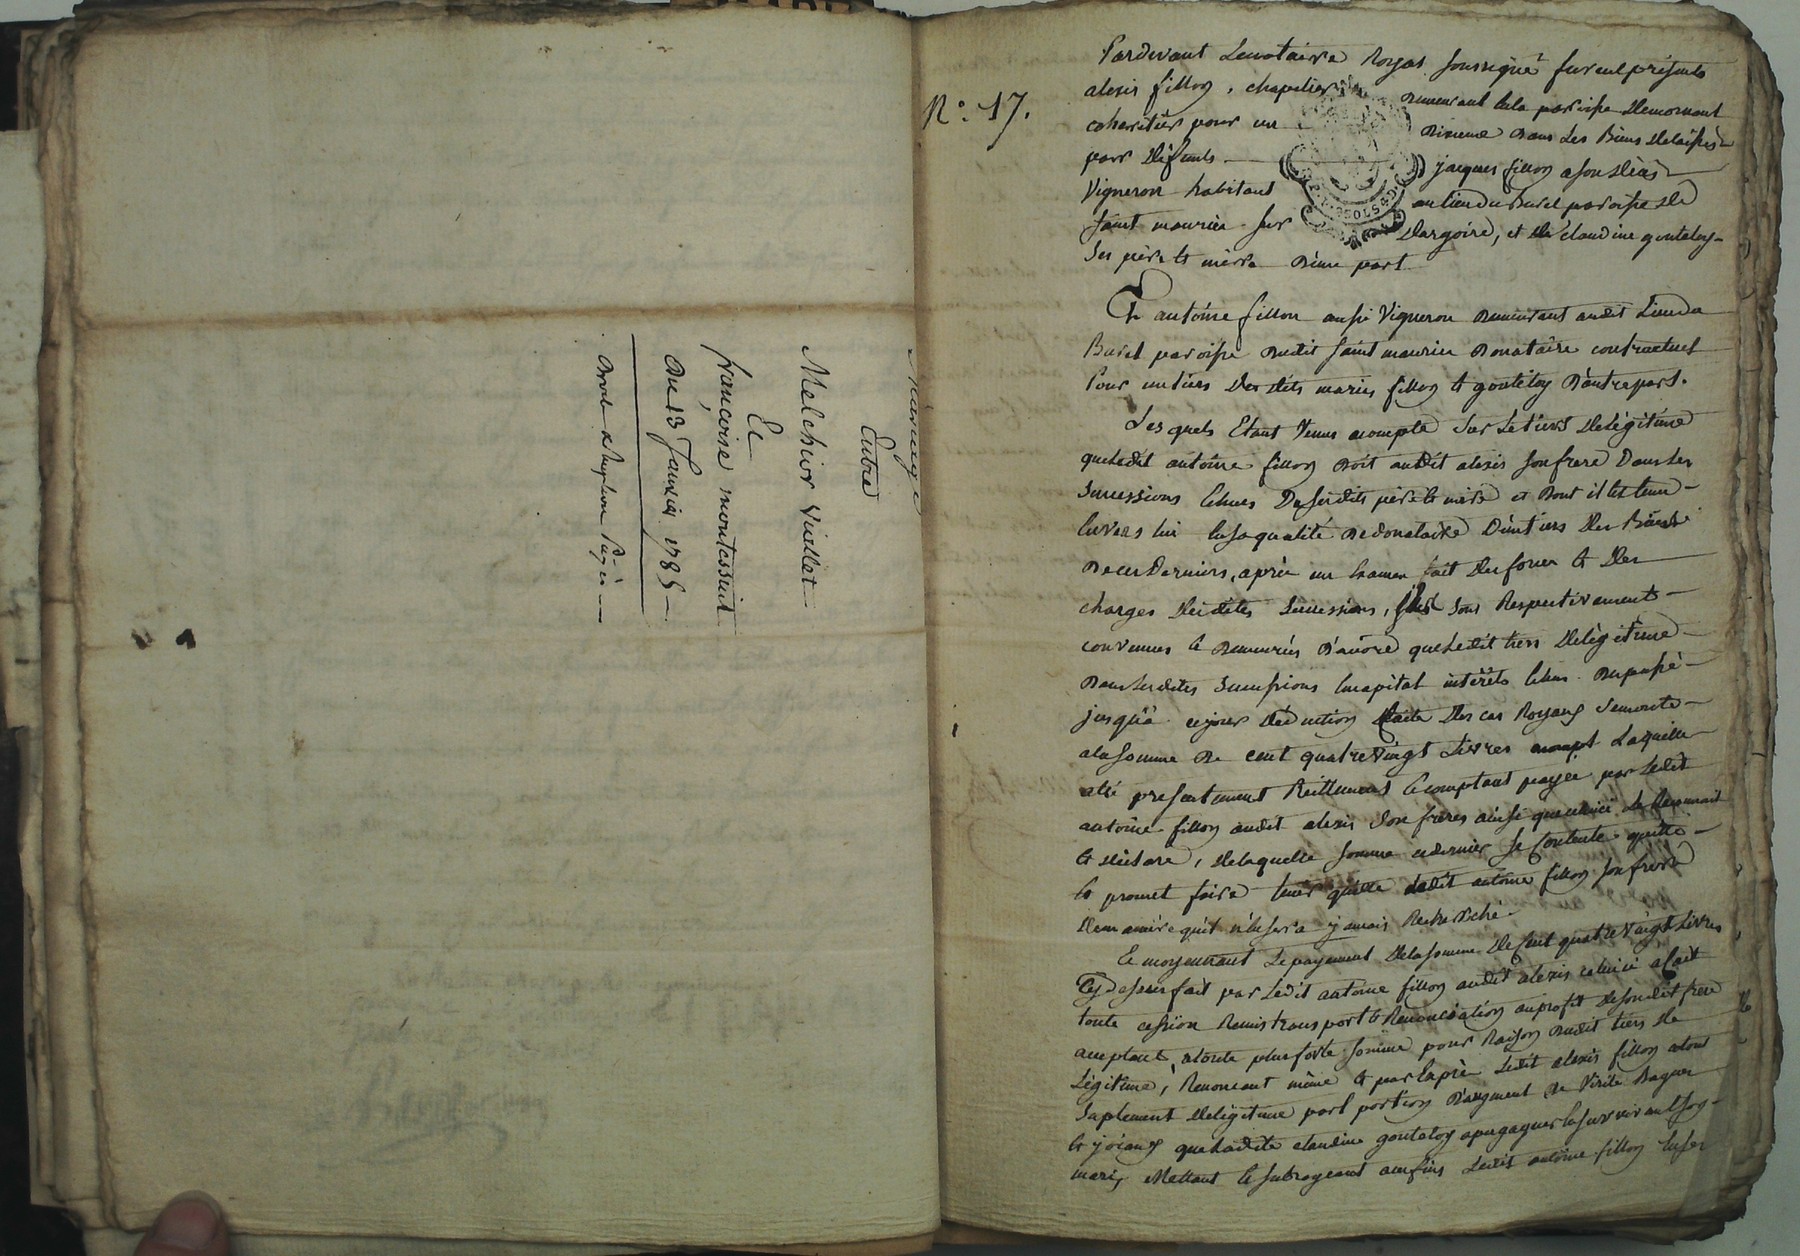 Mariage
Entre
Melchior Viallet
Et
françoise montessuit
Du 13 Janvier 1785
Droit
N.° 17.
Pardevant Lenotaire Royal soussigné furent présents
alexis fillon, chapelier demeurant la paroisse Demornant
coheritier pour un dixieme Dans Les Biens Delaissés
par Défunts jacques fillon
Vigneron habitant au lieu du Burel paroisse de
Saint maurice sur Dargoire, et de claudine gouteloy
Ses père et mère D'une part
Et antoine fillon aussi Vigneron demeurant audit Lieu du
Burel paroisse dudit Saint maurice Donataire contractuel
Pour un tiers des dits mariés fillon et gouteloy D'autre part.
Lesquels Etant Venus acompte sur Le tiers Delégitime
queledit antoine fillon Doit audit alexis sonfrere Dans les
Successions Echues De sesdits père et mère et Dont il est tenu
Envers lui En sa qualité de donataire D'un tiers des Biens
De ces Derniers, après un Examen fait des forces et des
charges desdites Successions, Ils sont Respectivement
convenus et demeurés D'acord queledit tiers Delégitime
Dans lesdites successions En capital intérêts Echus
jusqu'à cejour déduction faite des cas Royaux semonte
alasomme De cent quatrevingt Livres Laquelle
a été presentement Réellement et comptant payée par Ledit
antoine fillon audit alexis son frère ainsi que celuici Le Reconnait
et déclare, delaquelle somme cedernier se Contente quitte
et promet faire tenir quitte ledit antoine fillon son frere
demanière qu'il n'en sera jamais Recherché
Et moyennant Le payement delasomme de Cent quatrevingt Livres
Cydessus fait par Ledit antoine fillon audit alexis celuici afait
toute cession Remis transport et Renonciation au profit desondit frere
acceptant, atoute plus forte somme pour Raison dudit tiers de
Légitime, Renoncant même et par Exprès Ledit alexis fillon atout
Suplement delégitime part portion D'augment de Virile Bagues
et joiaux que ladite claudine gouteloy
mari, Mettant et subrogeant aux fins Ledit antoine fillon